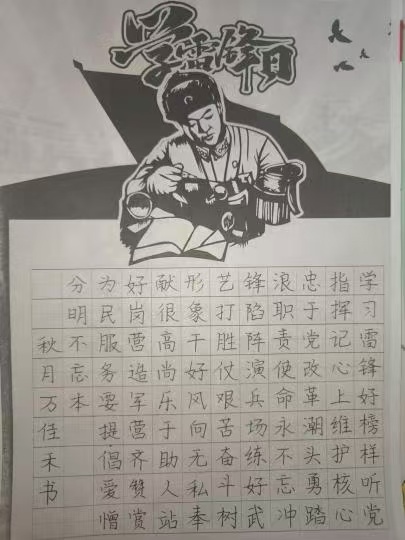 学雷锋日
学习雷锋好榜样听党
指挥记心上维护核心
忠于党改革潮头勇踏
浪职责使命永不忘冲
锋陷阵演兵场练好武
艺打胜仗艰苦奋斗树
形象干好风向无私奉
献很高尚乐于助人站
好岗营造军营齐赞赏
为民服务要提倡爱憎
分明不忘本
秋月万佳禾书